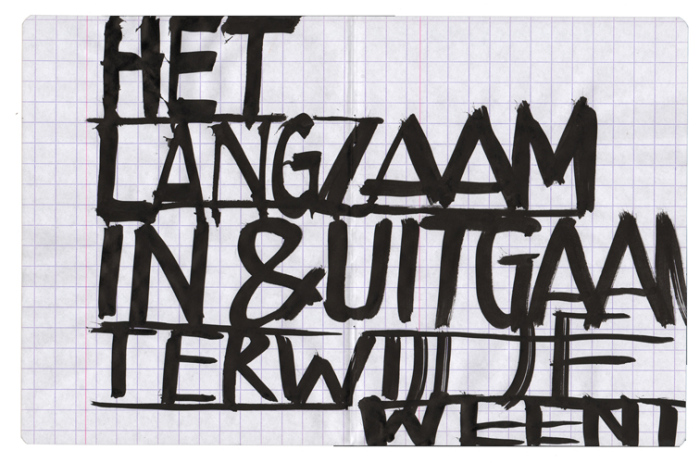 HET
LANGZAAM
IN & UITGAAN
TERWIJL JE
WEENT